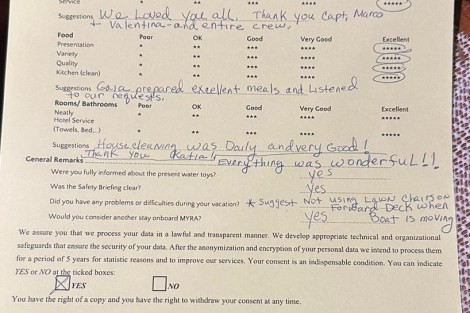 Service *****
Suggestions We Loved you all. Thank you Capt, Marco
+ Valentina - and entire crew.
Food Poor OK Good Very Good Excellent
Presentation * ** *** **** *****
Variety * ** *** **** *****
Quality * ** *** **** *****
Kitchen (clean) * ** *** **** *****
Suggestions Gaia prepared excellent meals and Listened
to our requests.
Rooms/ Bathrooms Poor OK Good Very Good Excellent
Neatly * ** *** **** *****
Hotel Service
(Towels, Bed...) * ** *** **** *****
Suggestions Housecleaning was Daily and very Good!
Thank you Katia!
General Remarks Everything was wonderful!!!
Were you fully informed about the present water toys? yes
Was the Safety Briefing clear? Yes
Did you have any problems or difficulties during your vacation? * Suggest Not using Lawn Chairs on
Forward Deck when
Boat is moving
Would you consider another stay onboard MYRA? yes
We assure you that we process your data in a lawful and transparent manner. We develop appropriate technical and organizational
safeguards that ensure the security of your data. After the anonymization and encryption of your personal data we intend to process them
for a period of 5 years for statistic reasons and to improve our services. Your consent is an indispensable condition. You can indicate
YES or NO at the ticked boxes:
YES NO
You have the right of a copy and you have the right to withdraw your consent at any time.